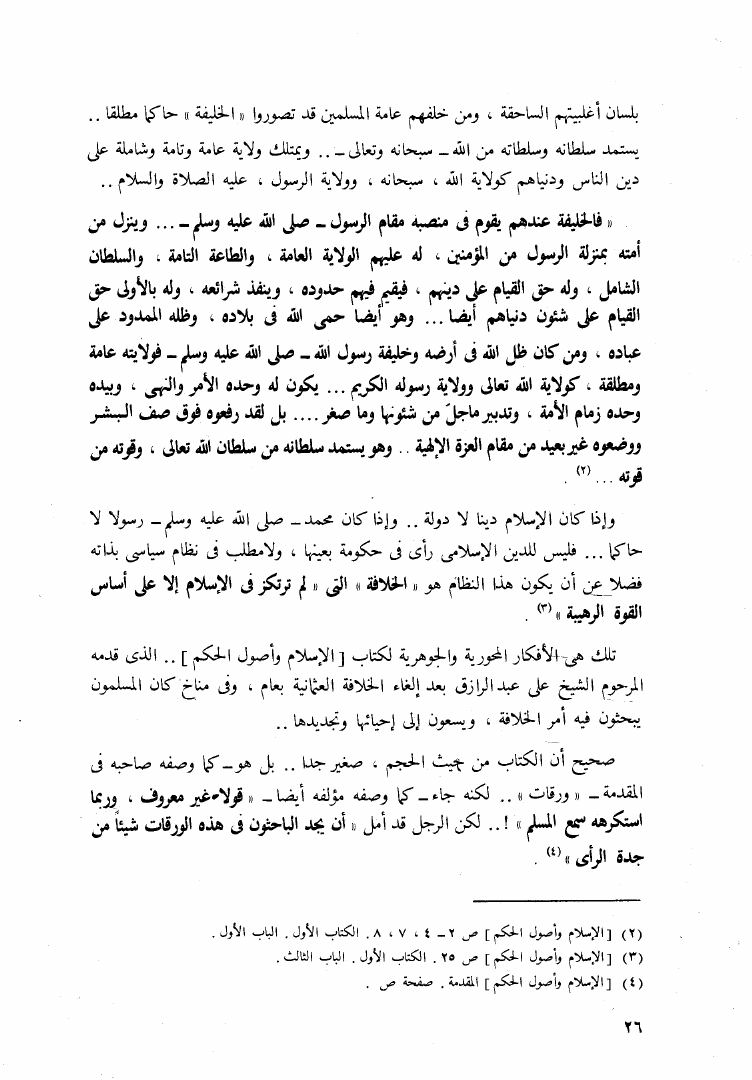 بلسان أغلبيتهم الساحقة ، ومن خلفهم عامة المسلمين قد تصوروا « الخليفة » حاكما مطلقا ..
يستمد سلطانه وسلطاته من الله ــ سبحانه وتعالى ــ .. ويمتلك ولاية عامة وتامة وشاملة على
دين الناس ودنياهم كولاية الله ، سبحانه ، وولاية الرسول ، عليه الصلاة والسلام ..
« فالخليفة عندهم يقوم فى منصبه مقام الرسول ــ صلى الله عليه وسلم ــ ... وينزل من
أمته بمنزلة الرسول من المؤمنين ، له عليهم الولاية العامة ، والطاعة التامة ، والسلطان
الشامل ، وله حق القيام على دينهم ، فيقيم فيهم حدوده ، وينفذ شرائعه ، وله بالأولى حق
القيام على شئون دنياهم أيضا ... وهو أيضا حمى الله فى بلاده ، وظله الممدود على
عباده ، ومن كان ظل الله فى أرضه وخليفة رسول الله ــ صلى الله عليه وسلم ــ فولايته عامة
ومطلقة ، كولاية الله تعالى وولاية رسوله الكريم ... يكون له وحده الأمر والنهى ، وبيده
وحده زمام الأمة ، وتدبير ماجلّ من شئونها وما صغر .... بل لقد رفعوه فوق صف البشر
ووضعوه غير بعيد من مقام العزة الإلهية .. وهو يستمد سلطانه من سلطان الله تعالى ، وقوته من
قوته ... (٢) .
وإذا كان الإسلام دينا لا دولة .. وإذا كان محمد ــ صلى الله عليه وسلم ــ رسولا لا
حاكما ... فليس للدين الإسلامى رأى فى حكومة بعينها ، ولامطلب فى نظام سياسى بذاته
فضلا عن أن يكون هذا النظام هو « الخلافة » التى « لم ترتكز فى الإسلام إلا على أساس
القوة الرهيبة » (٣) .
تلك هى الأفكار المحورية والجوهرية لكتاب [ الإسلام وأصول الحكم ] .. الذى قدمه
المرحوم الشيخ على عبد الرازق بعد إلغاء الخلافة العثمانية بعام ، وفى مناخ كان المسلمون
يبحثون فيه أمر الخلافة ، ويسعون إلى إحيائها وتجديدها ..
صحيح أن الكتاب من حيث الحجم ، صغير جدا .. بل هو ــ كما وصفه صاحبه فى
المقدمة ــ « ورقات » .. لكنه جاء ــ كما وصفه مؤلفه أيضا ــ « قولا غير معروف ، وربما
استكرهه سمع المسلم » ! .. لكن الرجل قد أمل « أن يجد الباحثون فى هذه الورقات شيئاً من
جدة الرأى » (٤) .
(٢) [ الإسلام وأصول الحكم ] ص ٢ ــ ٤ ، ٧ ، ٨ . الكتاب الأول . الباب الأول .
(٣) [ الإسلام وأصول الحكم ] ص ٢٥ . الكتاب الأول . الباب الثالث .
(٤) [ الإسلام وأصول الحكم ] المقدمة . صفحة ص .
٢٦